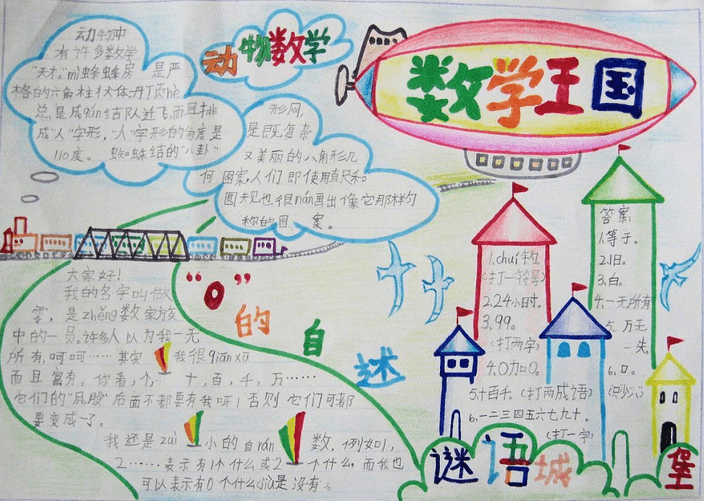 数学王国
动物数学
动物中
有许多数学
“天才”mì蜂蜂房 是严
格的六角柱状体丹顶hè
总是成qún结队迁飞,而且排
成“人”字形,“人”字形的角度是
110度。 蜘蛛结的“八卦”
形网,
是既复杂
又美丽的八角形几
何图案,人们即使用直尺和
圆规也很nán画出像它那样匀
称的图案。
“0”的自述
大家好!
我的名字叫做
零,是zhěng数家族
中的一员。许多人以为我一无
所有,呵呵……其实 我很qiān xū
而且富有。你看,个、十,百,千,万……
它们的“屁股”后面不都要有我呀!否则它们可都
要变成一了。
我还是zuì小的自rán数,例如1,
2……表示有1个什么或2个什么,而我也
可以表示有0个什么jiù是没有。
1.chuí钓
(打一符号)
2.24小时。
3.99。
(打两字)
4.0加0。
5.十百千。(打两成语)
6.一二三四五六七九十。
(打一字)
答案:
1.等于。
2.旧。
3.白。
4.一无所有
5.万无
一失。
6.口。
(只少八)
谜语城堡